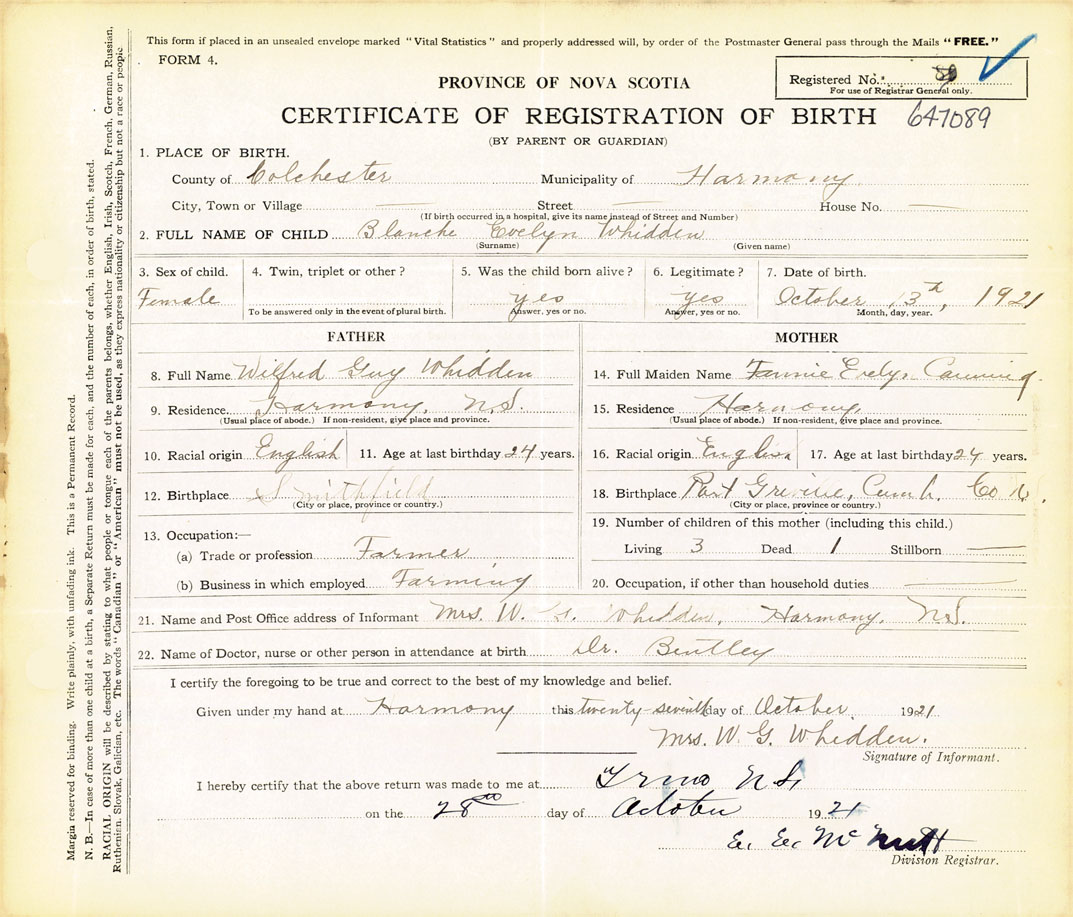 This form if placed in an unsealed envelope marked "Vital Statistics" and properly addressed will, by order of the Postmaster General pass through the Mails "FREE."
FORM 4.
Registered No.
For use of Registrar General only.
PROVINCE OF NOVA SCOTIA
CERTIFICATE OF REGISTRATION OF BIRTH 647089
(BY PARENT OR GUARDIAN)
1. PLACE OF BIRTH.
County of Colchester Municipality of Harmony
City, Town or Village — Street — House No. —
(If birth occurred in a hospital, give its name instead of Street and Number)
2. FULL NAME OF CHILD Blanche Evelyn Whidden
(Surname) (Given name)
3. Sex of child. 4. Twin, triplet or other? 5. Was the child born alive? 6. Legitimate? 7. Date of birth.
Female yes yes October 3rd, 1921
To be answered only in the event of plural birth. Answer, yes or no. Answer, yes or no. Month, day, year.
FATHER
8. Full Name Wilfred Guy Whidden
9. Residence. Harmony, N.S.
(Usual place of abode.) If non-resident, give place and province.
10. Racial origin English 11. Age at last birthday 24 years.
12. Birthplace Smithfield
(City or place, province or country.)
13. Occupation:—
(a) Trade or profession Farmer
(b) Business in which employed Farming
MOTHER
14. Full Maiden Name Fannie Evelyn Canning
15. Residence Harmony,
(Usual place of abode.) If non-resident, give place and province.
16. Racial origin English 17. Age at last birthday 24 years.
18. Birthplace Port Greville, Cumb. Co
(City or place, province or country.)
19. Number of children of this mother (including this child.)
Living 3 Dead 1 Stillborn —
20. Occupation, if other than household duties —
21. Name and Post Office address of Informant Mrs. W. G. Whidden, Harmony, N.S.
22. Name of Doctor, nurse or other person in attendance at birth Dr. Bentley
I certify the foregoing to be true and correct to the best of my knowledge and belief.
Given under my hand at Harmony this twenty-seventh day of October 1921
Mrs. W. G. Whidden.
Signature of Informant.
I hereby certify that the above return was made to me at Truro N.S.
on the 28th day of October 1921
E. E. McNutt
Division Registrar.
Margin reserved for binding. Write plainly, with unfading ink. This is a Permanent Record.
N. B.—In case of more than one child at a birth, a Separate Return must be made for each, and the number of each, in order of birth, stated.
RACIAL ORIGIN will be described by stating to what people or tongue each of the parents belongs, whether English, Irish, Scotch, French, German, Russian,
Ruthenian, Slovak, Galician, etc. The words "Canadian" or "American" must not be used, as they express nationality or citizenship but not a race or people.